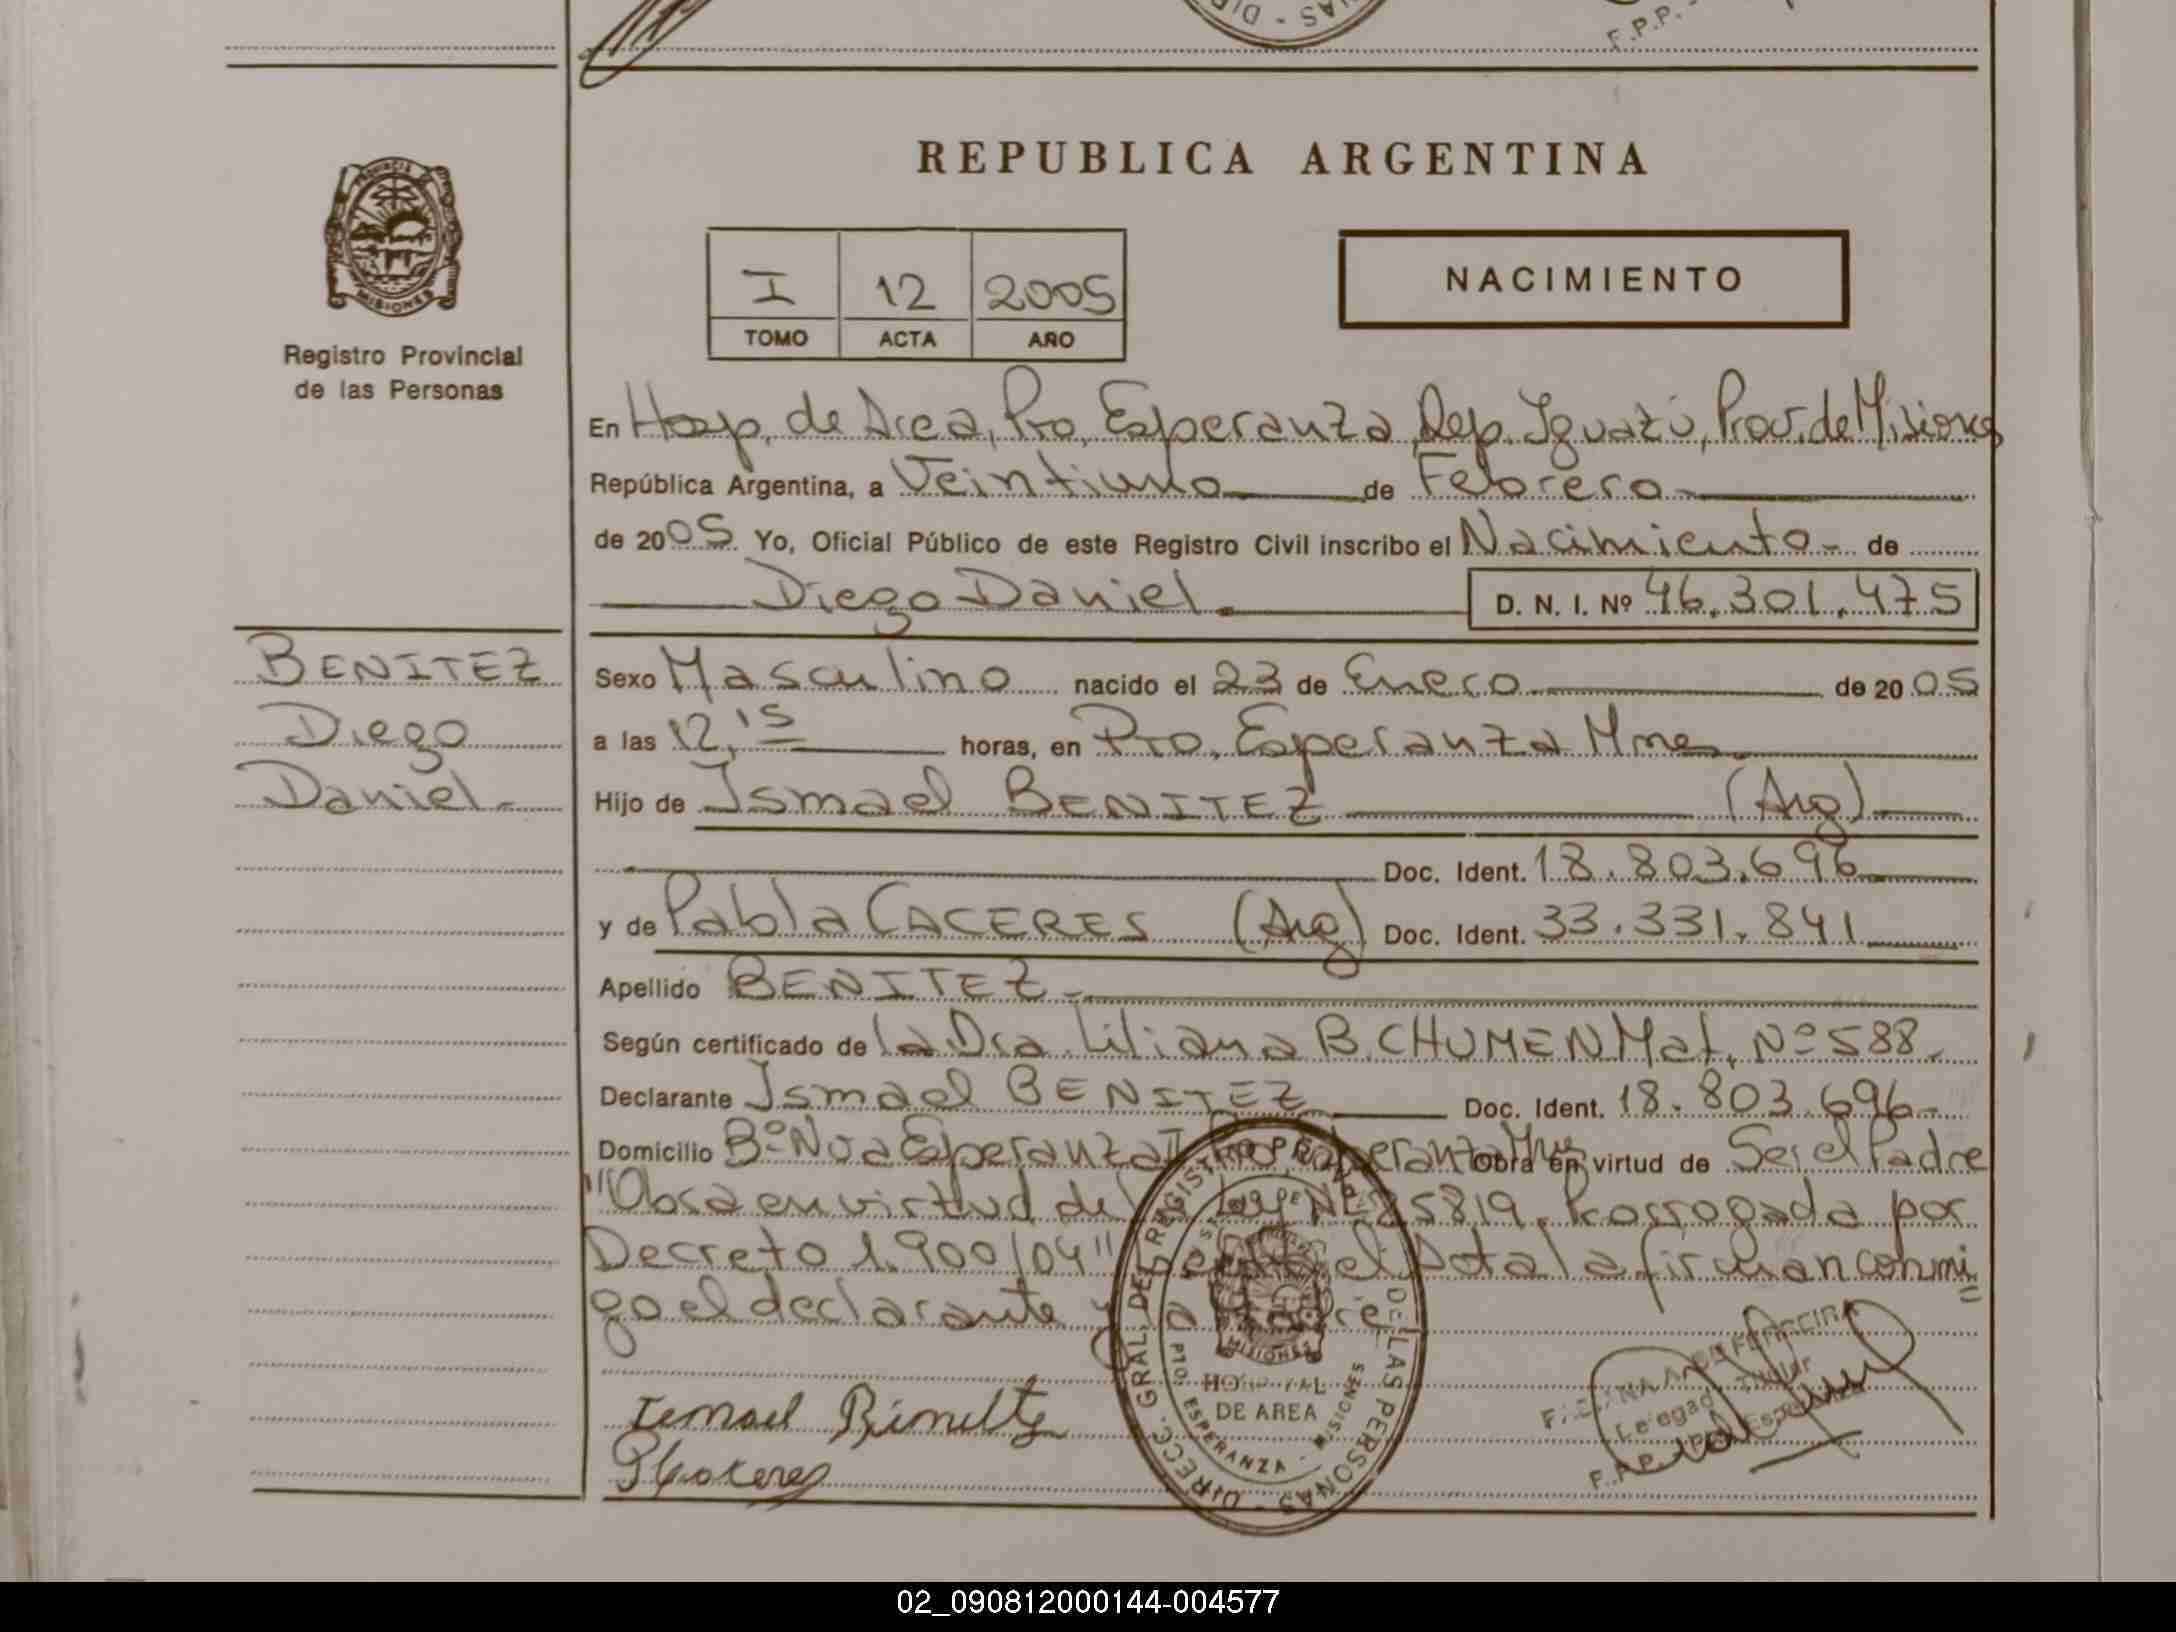 REPUBLICA ARGENTINA
PROVINCIA
MISIONES
Registro Provincial
de las Personas
I 12 2005
TOMO ACTA AÑO
NACIMIENTO
En Hosp. de Area, Pto. Esperanza, Dep. Iguazú, Prov. de Misiones
República Argentina, a Veintiuno de Febrero
de 2005 Yo, Oficial Público de este Registro Civil inscribo el Nacimiento de
Diego Daniel D. N. I. Nº 46.301.475
BENITEZ
Diego
Daniel
Sexo Masculino nacido el 23 de Enero de 2005
a las 12,15 horas, en Pto. Esperanza Mnes
Hijo de Ismael BENITEZ (Arg)
Doc. Ident. 18.803.696
y de Pabla CACERES (Arg) Doc. Ident. 33.331.841
Apellido BENITEZ
Según certificado de la Dra. Liliana B. CHUMEN Mat. Nº 588
Declarante Ismael BENITEZ Doc. Ident. 18.803.696
Domicilio Bº Nva Esperanza II Obra en virtud de Ser el Padre
"Obra en virtud de la Ley Nº 25819, Prorrogada por
Decreto 1.900/04" el Acta la firman conmi
go el declarante y la
DIRECC. GRAL. DEL REGISTRO DE LAS PERSONAS
MISIONES
HOSPITAL
DE AREA
PTO. ESPERANZA - MISIONES
Ismael Benitez
P Caceres
F.P.P.
02_090812000144-004577